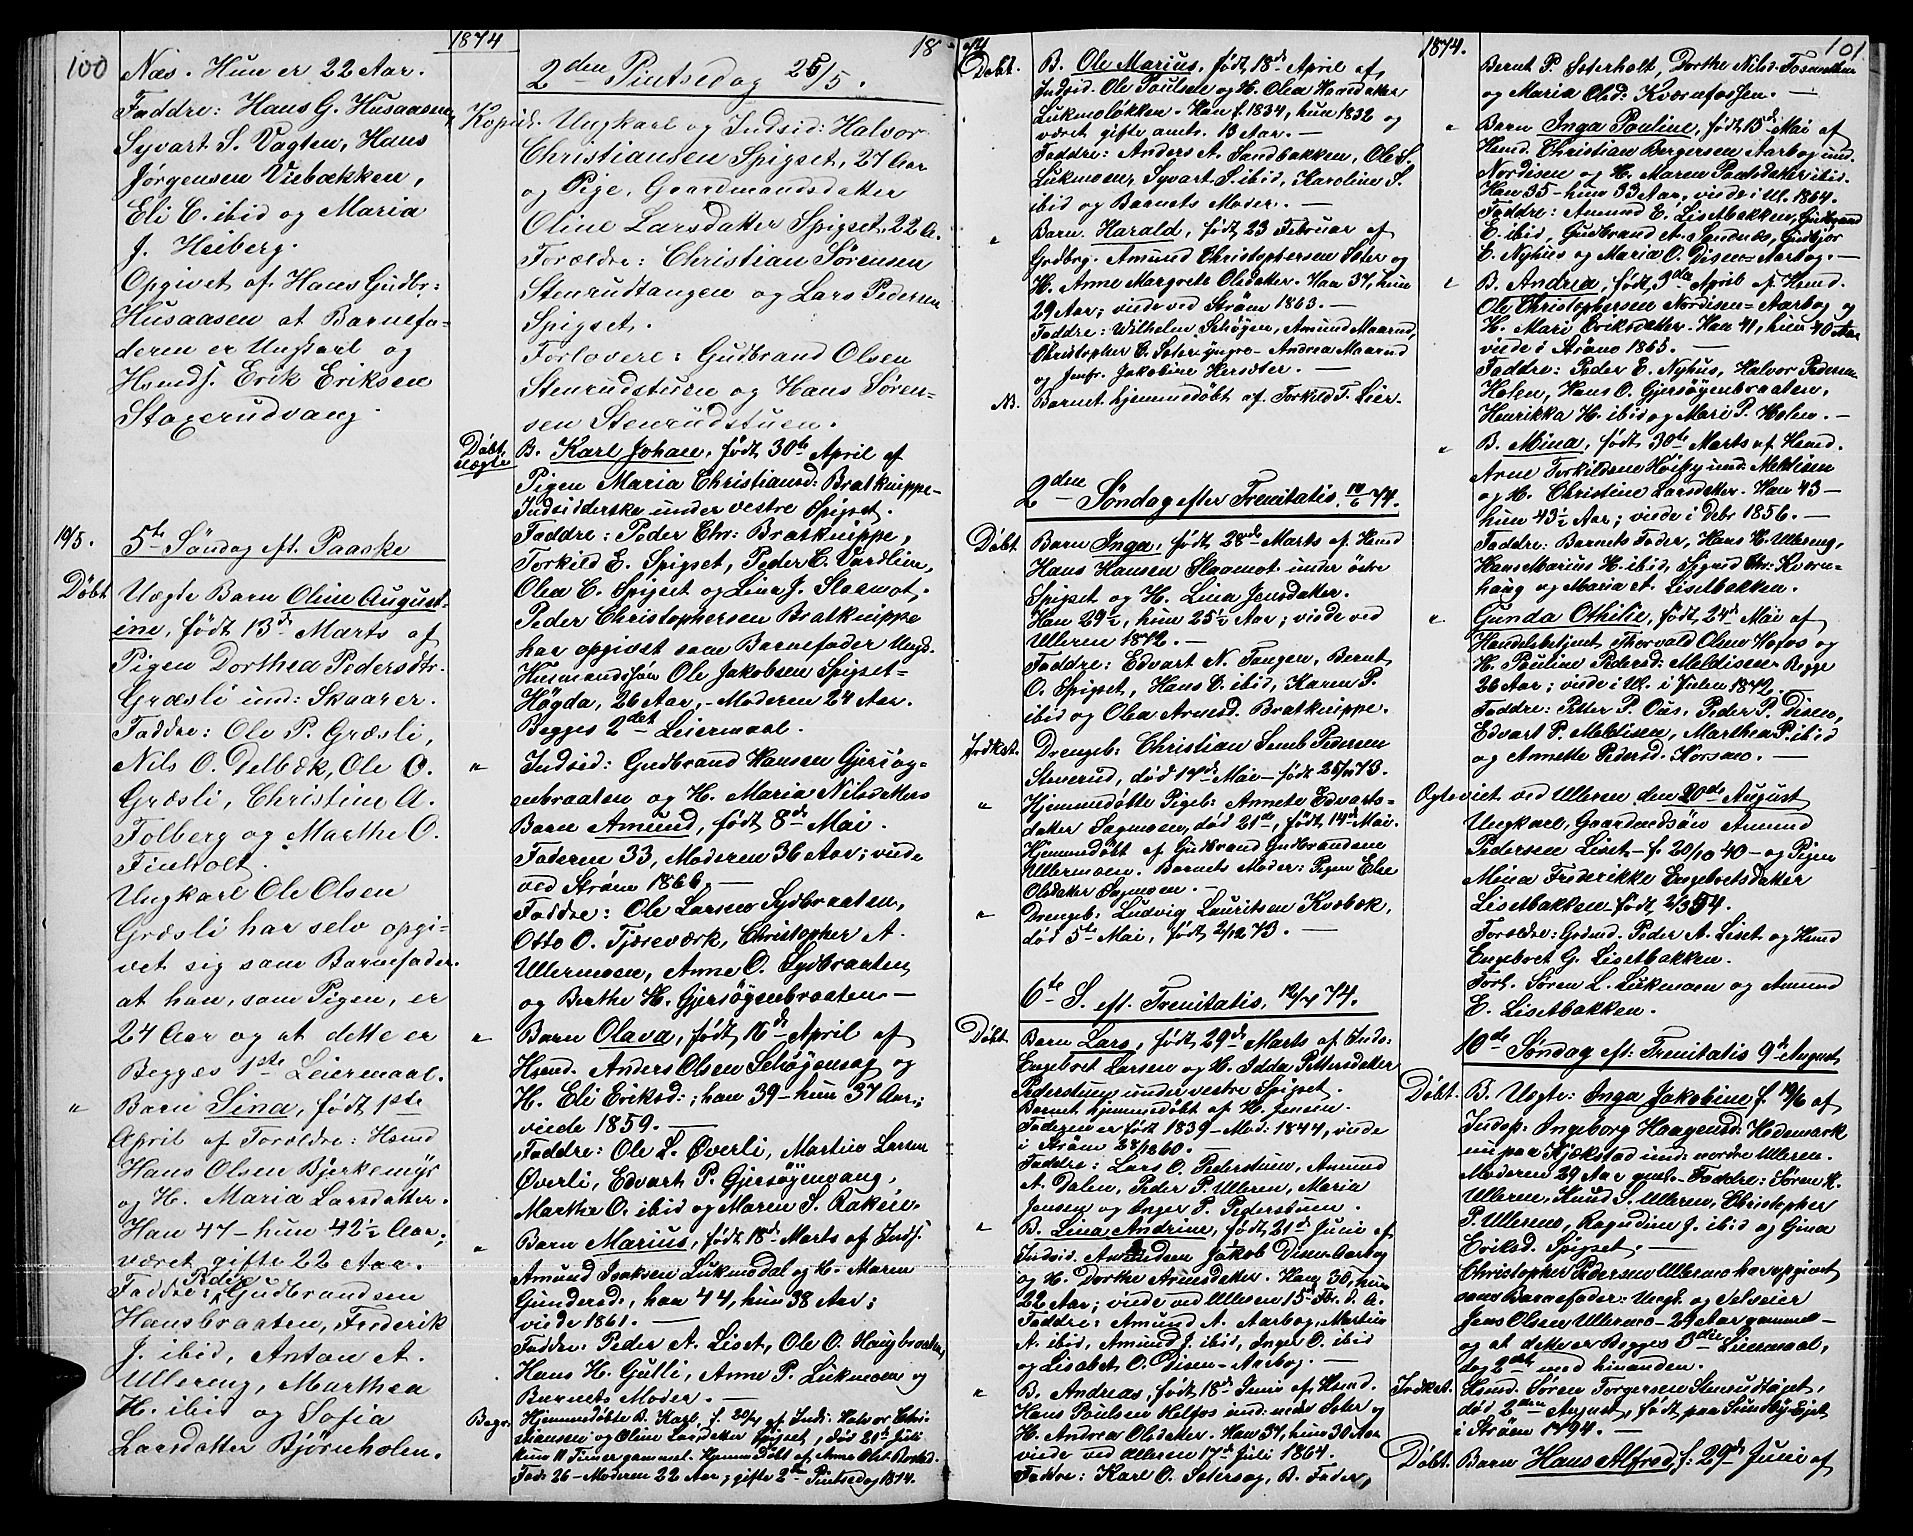 100
Næs. Hun er 22 Aar.
Faddre: Hans G. Husaasen,
Syvart S. Vagten, Hans
Jørgensen Viebækken,
Eli C. ibid og Maria
J. Heiberg.
Opgivet af Hans Gudbr:
Husaasen at Barnefa-
deren er Ungkarl og
Hsmds. Erik Eriksen
Stagerudvang.
19/5. 5te Søndag eft. Paaske
Døbt Uægte Barn Oline August-
ine, født 13de Marts af
Pigen Dorthea Pedersdtr.
Græsli ind: Skaarer.
Faddre: Ole P. Græsli,
Nils O. Delbæk, Ole O.
Græsli, Christine A.
Folberg og Marthe O.
Finholt.
Ungkarl Ole Olsen
Græsli har selv opgi-
vet sig som Barnefader.
at han, som Pigen, er
24 Aar og at dette er
Begges 1ste Leiermaal.
" Barn Sina, født 1ste
April af Forældre: Hsmd
Hans Olsen Bjerkemyr
og H. Maria Larsdatter.
Han 47 – hun 42½ Aar;
været gifte 22 Aar.
Faddre: Peder Gudbrandsen
Hansbraaten, Frederik
J. ibid, Anton A.
Ullereng, Marthea
H. ibid og Sofia
Larsdatter Bjørnholen.
1874
18
2den Pintsedag 25/5.
Kopul. Ungkarl og Indsid: Halvor
Christiansen Spigset, 27 Aar
og Pige, Gaardmandsdatter
Oline Larsdatter Spigset, 22 A.
Forældre: Christian Sørensen
Stenrudtangen og Lars Pedersen
Spigset.
Forlovere: Gudbrand Olsen
Stenrudstuen og Hans Søren-
sen Stenrudstuen.
Døbt uægte B. Karl Johan, født 30te April af
Pigen Maria Christiansd: Bratknippe-
Indsidderske under vestre Spigset.
Faddre: Peder Chr: Bratknippe,
Torkild E. Spigset, Peder C. Vardlien,
Olea C. Spigset og Lina J. Slaamot.
Peder Christophersen Bratknippe
har opgivet som Barnefader Ungk.
Husmandssøn Ole Jakobsen Spigset-
Høgda, 26 Aar, – Moderen 24 Aar.
Begges 2det Leiermaal.
" Indsid: Gudbrand Hansen Gjersøg-
enbraaten og H. Maria Nilsdatters
Barn Amund, født 8de Mai.
Faderen 33, Moderen 36 Aar; viede
ved Strøm 1866. —
Faddre: Ole Larsen Sydbraaten,
Otto O. Tjæreværk, Christopher A.
Ullermoen, Anne O. Sydbraaten
og Berthe H. Gjersøgenbraaten. —
" Barn Olava, født 16de April af
Hsmd. Anders Olsen Schøgensag og
H. Eli Eriksd:; han 39 – hun 37 Aar;
viede 1859. —
Faddre: Ole L. Øverli, Martin Larsen
Øverli, Edvart P. Gjersøgenvang,
Marthe O. ibid og Maren S. Raken.
" Barn Marius, født 18de Marts af Inds.
Amund Isaksen Lukmodal og H. Maren
Gundersd., han 44, hun 38 Aar;
viede 1861. —
Faddre: Peder A. Liset, Ole O. Haugbraaten,
Hans H. Gulli, Anne P. Lukmoen og
Barnets Moder. —
Begr. Hjemmedøbte B. Karl, f. 20/7 af Inds: Halvor Chri-
stiansen og Oline Larsdatter Spigset, død 21de Juli
kun 11 Timer gammel. Hjemmedøbt af Anne Olsd.
Fade 26 – Moderen 22 Aar, gifte 2den Pintsedag 1874.
74
Døbt. B. Ole Marius, født 18de April af
Indsid. Ole Poulsen og H. Olea Hansdatter
Lukmoløkken. Han f. 1834, hun 1832 og
været gifte omtr. 13 Aar. —
Faddre: Anders A. Sandbakken, Ole S.
Lukmoen, Syvart S. ibid, Karoline S.
ibid og Barnets Moder. —
" Barn Harald, født 23 Februar af
Grdbrg. Amund Christophersen Soter og
H. Anne Margrete Olsdatter. Han 37, hun
29 Aar; viede ved Strøm 1863. —
Faddre: Wilhelm Schøyen, Amund Maarud,
Christopher C. Soter yngre – Andrea Maarud
og Jomfr. Jakobine Hersæter. —
NB. Barnet hjemmedøbt af Torkild T. Lier.
2den Søndag efter Trenitatis 14/6 74.
Døbt Barn Inga, født 28de Marts af Hsmd
Hans Hansen Slaamot under østre
Spigset og H. Lina Jensdatter.
Han 29½, hun 25½ Aar; viede ved
Ulleren 1872. —
Faddre: Edvart N. Tangen, Bernt
O. Spigset, Hans O. ibid, Karen P.
ibid og Olea Arnesd. Bratknippe.
Jrdkst. Drengeb: Christian Semb Pedersen
Steverud, død 17de Mai – født 25/11 73.
" Hjemmedøbte Pigeb: Annete Edvarts-
datter Sagmoen, død 21de, født 14de Mai.
Hjemmedøbt af Gudbrand Gudbrandsen
Ullermoen. Barnets Moder: Pigen Else
Olsdatter Sagmoen. —
" Drengeb: Ludvig Lauritsen Kvæbæk,
død 5te Mai, født 2/12 73. —
6te S. eft. Trenitatis, 12/7 74.
Døbt Barn Lars, født 29de Marts af Inds:
Engebret Larsen og H. Idda Pettersdatter
Pederstuen under vestre Spigset.
Barnet hjemmedøbt af H. Jensen.
Faderen er født 1839 – Mod: 1844, viede
i Strøm 28/1 1860. —
Faddre: Lars O. Pederstuen, Amund
A. Dalen, Peder P. Ulleren, Maria
Jensen og Inger P. Pederstuen.
" B. Lina Andrine, født 21de Juni af
Indsid. Jakob Disen-Aarbog
og H. Dorthe Arnesdatter. Han 36, hun
22 Aar; viede ved Ulleren 15de Fbr. d. A.
Faddre: Amund A. Aarbog, Martin
A. ibid, Amund J. ibid, Inger O. ibid
og Lisabet O. Disen-Aarbog. —
" B. Andreas, født 18de Juni af Hsmd.
Hans Poulsen Helfos ind: nedr Soter og
H. Andrea Olsdatter. Han 37, hun 30 Aar
viede ved Ulleren 17de Juli 1864.
Faddre: Karl O. Setersag, B. Fader,
1874.
101
Bernt P. Soterholt, Dorthe Nilsd. Fosenthun
og Maria Olsd: Kværnfossen. —
" Barn Inga Pauline, født 15de Mai af
Hsmd. Christian Bergersen Aarbog ind.
Nordisen og H. Maren Paulsdatter ibid.
Han 35 – hun 33 Aar, viede i Ul. 1864.
Faddre: Amund E. Lisetbakken, Gudbrand
E. ibid, Gudbrand A. Sundnæs, Gudbjør
E. Nyhus og Maria O. Disen-Aarbog. —
" B. Andrea, født 3die April af Hsmd.
Ole Christophersen Nordisen-Aarbog og
H. Mari Eriksdatter. Han 41, hun 40 Aar
viede i Strøm 1865. —
Faddre: Peder E. Nyhus, Halvor Pedersen
Holen, Hans O. Gjersøgenbraaten,
Henrikka H. ibid og Mari P. Holen. —
" B. Mina, født 30te Marts af Hsmd.
Arne Torkildsen Høiby ind: Meldisen
og H. Christine Larsdatter. Han 43 –
hun 43½ Aar; viede i Debr 1856. —
Faddre: Barnets Fader, Hans H. Ullereng,
Hans Marius H. ibid, Sigrid Chr. Kværn-
haug og Maria A. Lisetbakken.
" Gunda Othilie, født 24de Mai af
Handelsbetjent Thorvald Olsen Hofos og
H. Pauline Pedersd: Meldisen. Begge
26 Aar; viede i Ul. i Julen 1872.
Faddre: Petter P. Ous, Peder P. Disen,
Edvart P. Meldisen, Marthea P. ibid
og Annette Pedersd. Korsmo. —
Ægteviet ved Ulleren den 20de August
Ungkarl, Gaardmdsøn Amund
Pedersen Liset – f. 20/10 40 – og Pigen
Mina Frederikke Engebretsdatter
Lisetbakken – født 2/3 54.
Forældre: Grdmd. Peder A. Liset og Hsmd
Engebret G. Lisetbakken.
Forl. Søren L. Lukmoen og Amund
E. Lisetbakken.
10de Søndag eft: Trenitatis 9de August
Døbt. B. Uægte: Inga Jakobine f. 19/6 af
Indsp: Ingeborg Haagensd: Hedemark
nu paa Kjækstad ind: nordre Ulleren.
Moderen 29 Aar gml. – Faddre: Søren K.
Ulleren, Lund S. Ulleren, Christopher
P. Ulleren, Ragndine J. ibid og Gina
Eriksd. Spigset. —
Christopher Pedersen Ullermo har opgivet
som Barnefader: Ungk. og Selveier
Jens Olsen Ullermo – 29 Aar gammel –
og at dette er Begges 3die Leiermaal,
dog 2det med hinanden.
Jrdkst. Hsmd. Søren Torgersen Stenrudtøiet,
død 2den August, født paa Sundby Eiet
i Strøm 1794. —
Døbt. Barn Hans Alfred, f. 29de Juni af